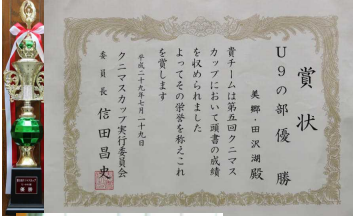 賞状
U9の部優勝
美郷・田沢湖殿
貴チームは第五回クニマス
カップにおいて頭書の成績
を収められました
よってその栄誉を称えこれ
を賞します
平成二十九年七月二十九日
クニマスカップ実行委員会
委員長 信田昌史